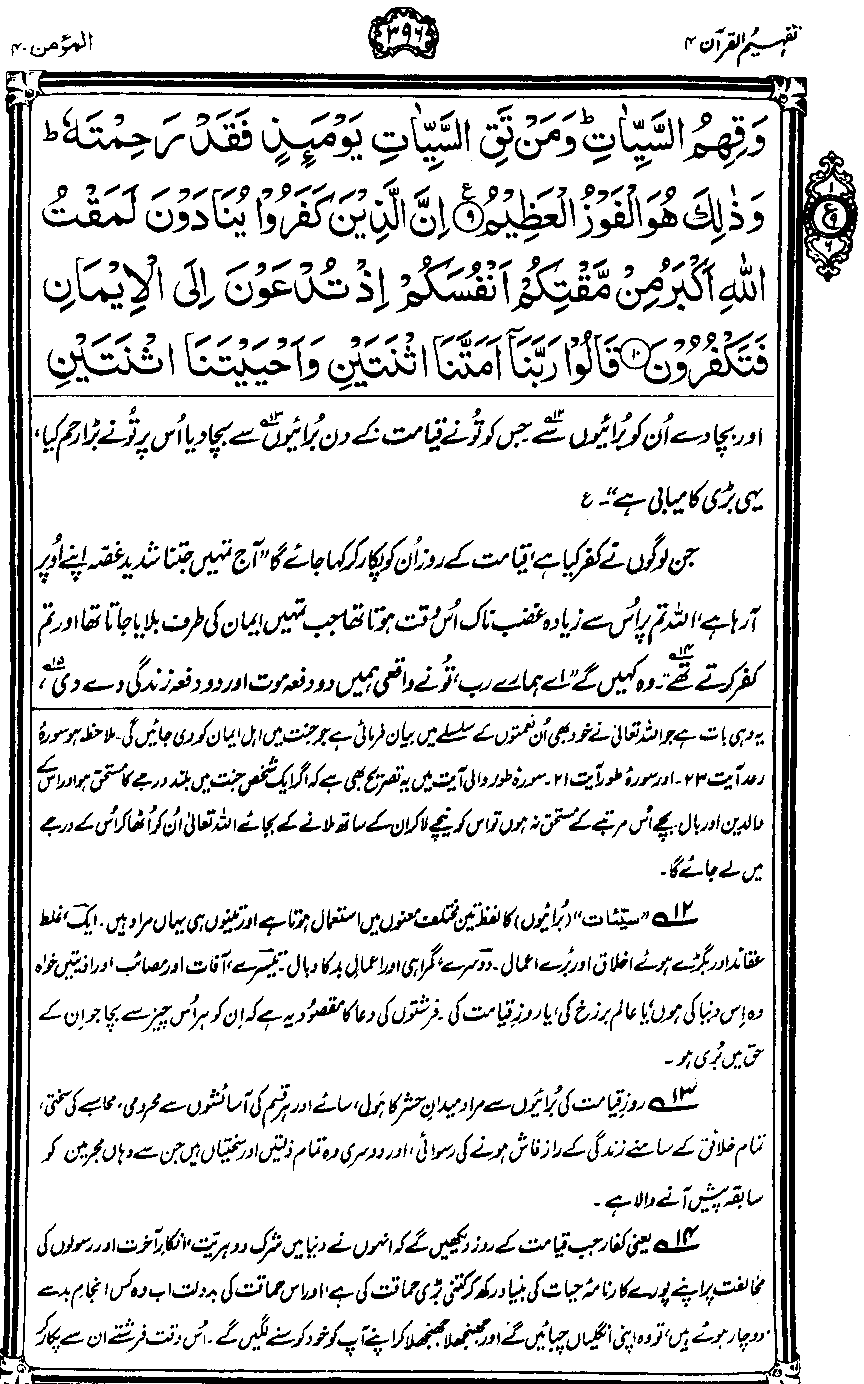 تفہیم القرآن ۴
۳۹۶
المؤمن ۴۰
وَقِهِمُ السَّيِّاٰتِ ؕ وَمَنْ تَقِ السَّيِّاٰتِ يَوْمَىِٕذٍ فَقَدْ رَحِمْتَهٗ ؕ
وَذٰلِكَ هُوَ الْفَوْزُ الْعَظِيْمُ ۹ۧ اِنَّ الَّذِيْنَ كَفَرُوْا يُنَادَوْنَ لَمَقْتُ
اللّٰهِ اَكْبَرُ مِنْ مَّقْتِكُمْ اَنْفُسَكُمْ اِذْ تُدْعَوْنَ اِلَى الْاِيْمَانِ
فَتَكْفُرُوْنَ ۱۰ قَالُوْا رَبَّنَاۤ اَمَتَّنَا اثْنَتَيْنِ وَاَحْيَيْتَنَا اثْنَتَيْنِ
۱
ع
۹
۶
اور بچا دے اُن کو بُرائیوں سے۱۲۔ جس کو تُو نے قیامت کے دن بُرائیوں۱۳ سے بچا دیا اُس پر تُو نے بڑا رحم کیا،
یہی بڑی کامیابی ہے“۔ ع
جن لوگوں نے کفر کیا ہے، قیامت کے روز اُن کو پکار کر کہا جائے گا ”آج تمہیں جتنا شدید غصہ اپنے اُوپر
آ رہا ہے، اللہ تم پر اُس سے زیادہ غضب ناک اُس وقت ہوتا تھا جب تمہیں ایمان کی طرف بلایا جاتا تھا اور تم
کفر کرتے تھے۱۴“۔ وہ کہیں گے ”اے ہمارے رب، تُو نے واقعی ہمیں دو دفعہ موت اور دو دفعہ زندگی دے دی۱۵،
یہ وہی بات ہے جو اللہ تعالیٰ نے خود بھی اُن نعمتوں کے سلسلے میں بیان فرمائی ہے جو جنت میں اہل ایمان کو دی جائیں گی۔ ملاحظہ ہو سورۂ
رعد آیت ۲۳۔ اور سورۂ طور آیت ۲۱۔ سورۂ طور والی آیت میں یہ تصریح بھی ہے کہ اگر ایک شخص جنت میں بلند درجے کا مستحق ہو اور اس کے
والدین اور بال بچے اُس مرتبے کے مستحق نہ ہوں تو اس کو نیچے لا کر ان کے ساتھ ملانے کے بجائے اللہ تعالیٰ اُن کو اُٹھا کر اُس کے درجے
میں لے جائے گا۔
۱۲ ”سیّئات“ (بُرائیوں) کا لفظ تین مختلف معنوں میں استعمال ہوتا ہے اور تینوں ہی یہاں مراد ہیں۔ ایک، غلط
عقائد اور بگڑے ہوئے اخلاق اور بُرے اعمال۔ دوسرے، گمراہی اور اعمالِ بد کا وبال۔ تیسرے، آفات اور مصائب اور اذیتیں خواہ
وہ اِس دنیا کی ہوں، یا عالم برزخ کی، یا روزِ قیامت کی۔ فرشتوں کی دعا کا مقصُود یہ ہے کہ اِن کو ہر اُس چیز سے بچا جو اِن کے
حق میں بُری ہو۔
۱۳ روزِ قیامت کی بُرائیوں سے مراد میدانِ حشر کا ہَول، سائے اور ہر قسم کی آسائشوں سے محرومی، محاسبے کی سختی،
تمام خلائق کے سامنے زندگی کے راز فاش ہونے کی رسوائی، اور دوسری وہ تمام ذلتیں اور سختیاں ہیں جن سے وہاں مجرمین کو
سابقہ پیش آنے والا ہے۔
۱۴ یعنی کفار جب قیامت کے روز دیکھیں گے کہ انہوں نے دنیا میں شرک و دہریت، انکارِ آخرت اور رسولوں کی
مخالفت پر اپنے پورے کارنامۂ حیات کی بنیاد رکھ کر کتنی بڑی حماقت کی ہے، اور اس حماقت کی بدولت اب وہ کس انجامِ بد سے
دوچار ہوئے ہیں، تو وہ اپنی انگلیاں چبائیں گے اور جھنجھلا جھنجھلا کر اپنے آپ کو خود کوسنے لگیں گے۔ اُس وقت فرشتے ان سے پکار کر